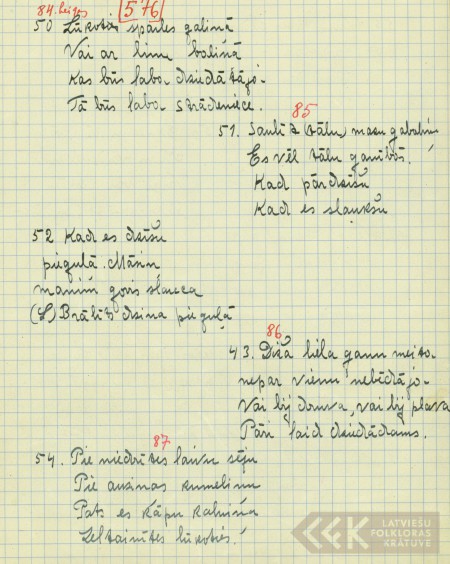 84. beigas 576
50 Lūkoties spārles galiņā
Vai ar linu baliņā
Kas būs laba dziedātāja.
Tā būs laba strādeniece.
85
51. Saulīte tālu, mazu gabaliņu
Es vēl tālu ganībās.
Kad pārdzīšu
Kad es slaukšu
52 Kad es dzīšu
pieguļā. Māsiņ
maniņ govis slauca
(S) Brālīts dzina pieguļā
86
43. Diža liela ganu meita.
nepar vienu nebēdāja.
Vai bij druva, vai bij pļava
Pāri laid dziedādams.
87
54. Pie niedrītes laivu sēju
Pie auziņas kumeliņu
Pats es kāpu kalniņā
Zeltainītes lūkoties.
LATVIEŠU
FOLKLORAS
KRĀTUVE